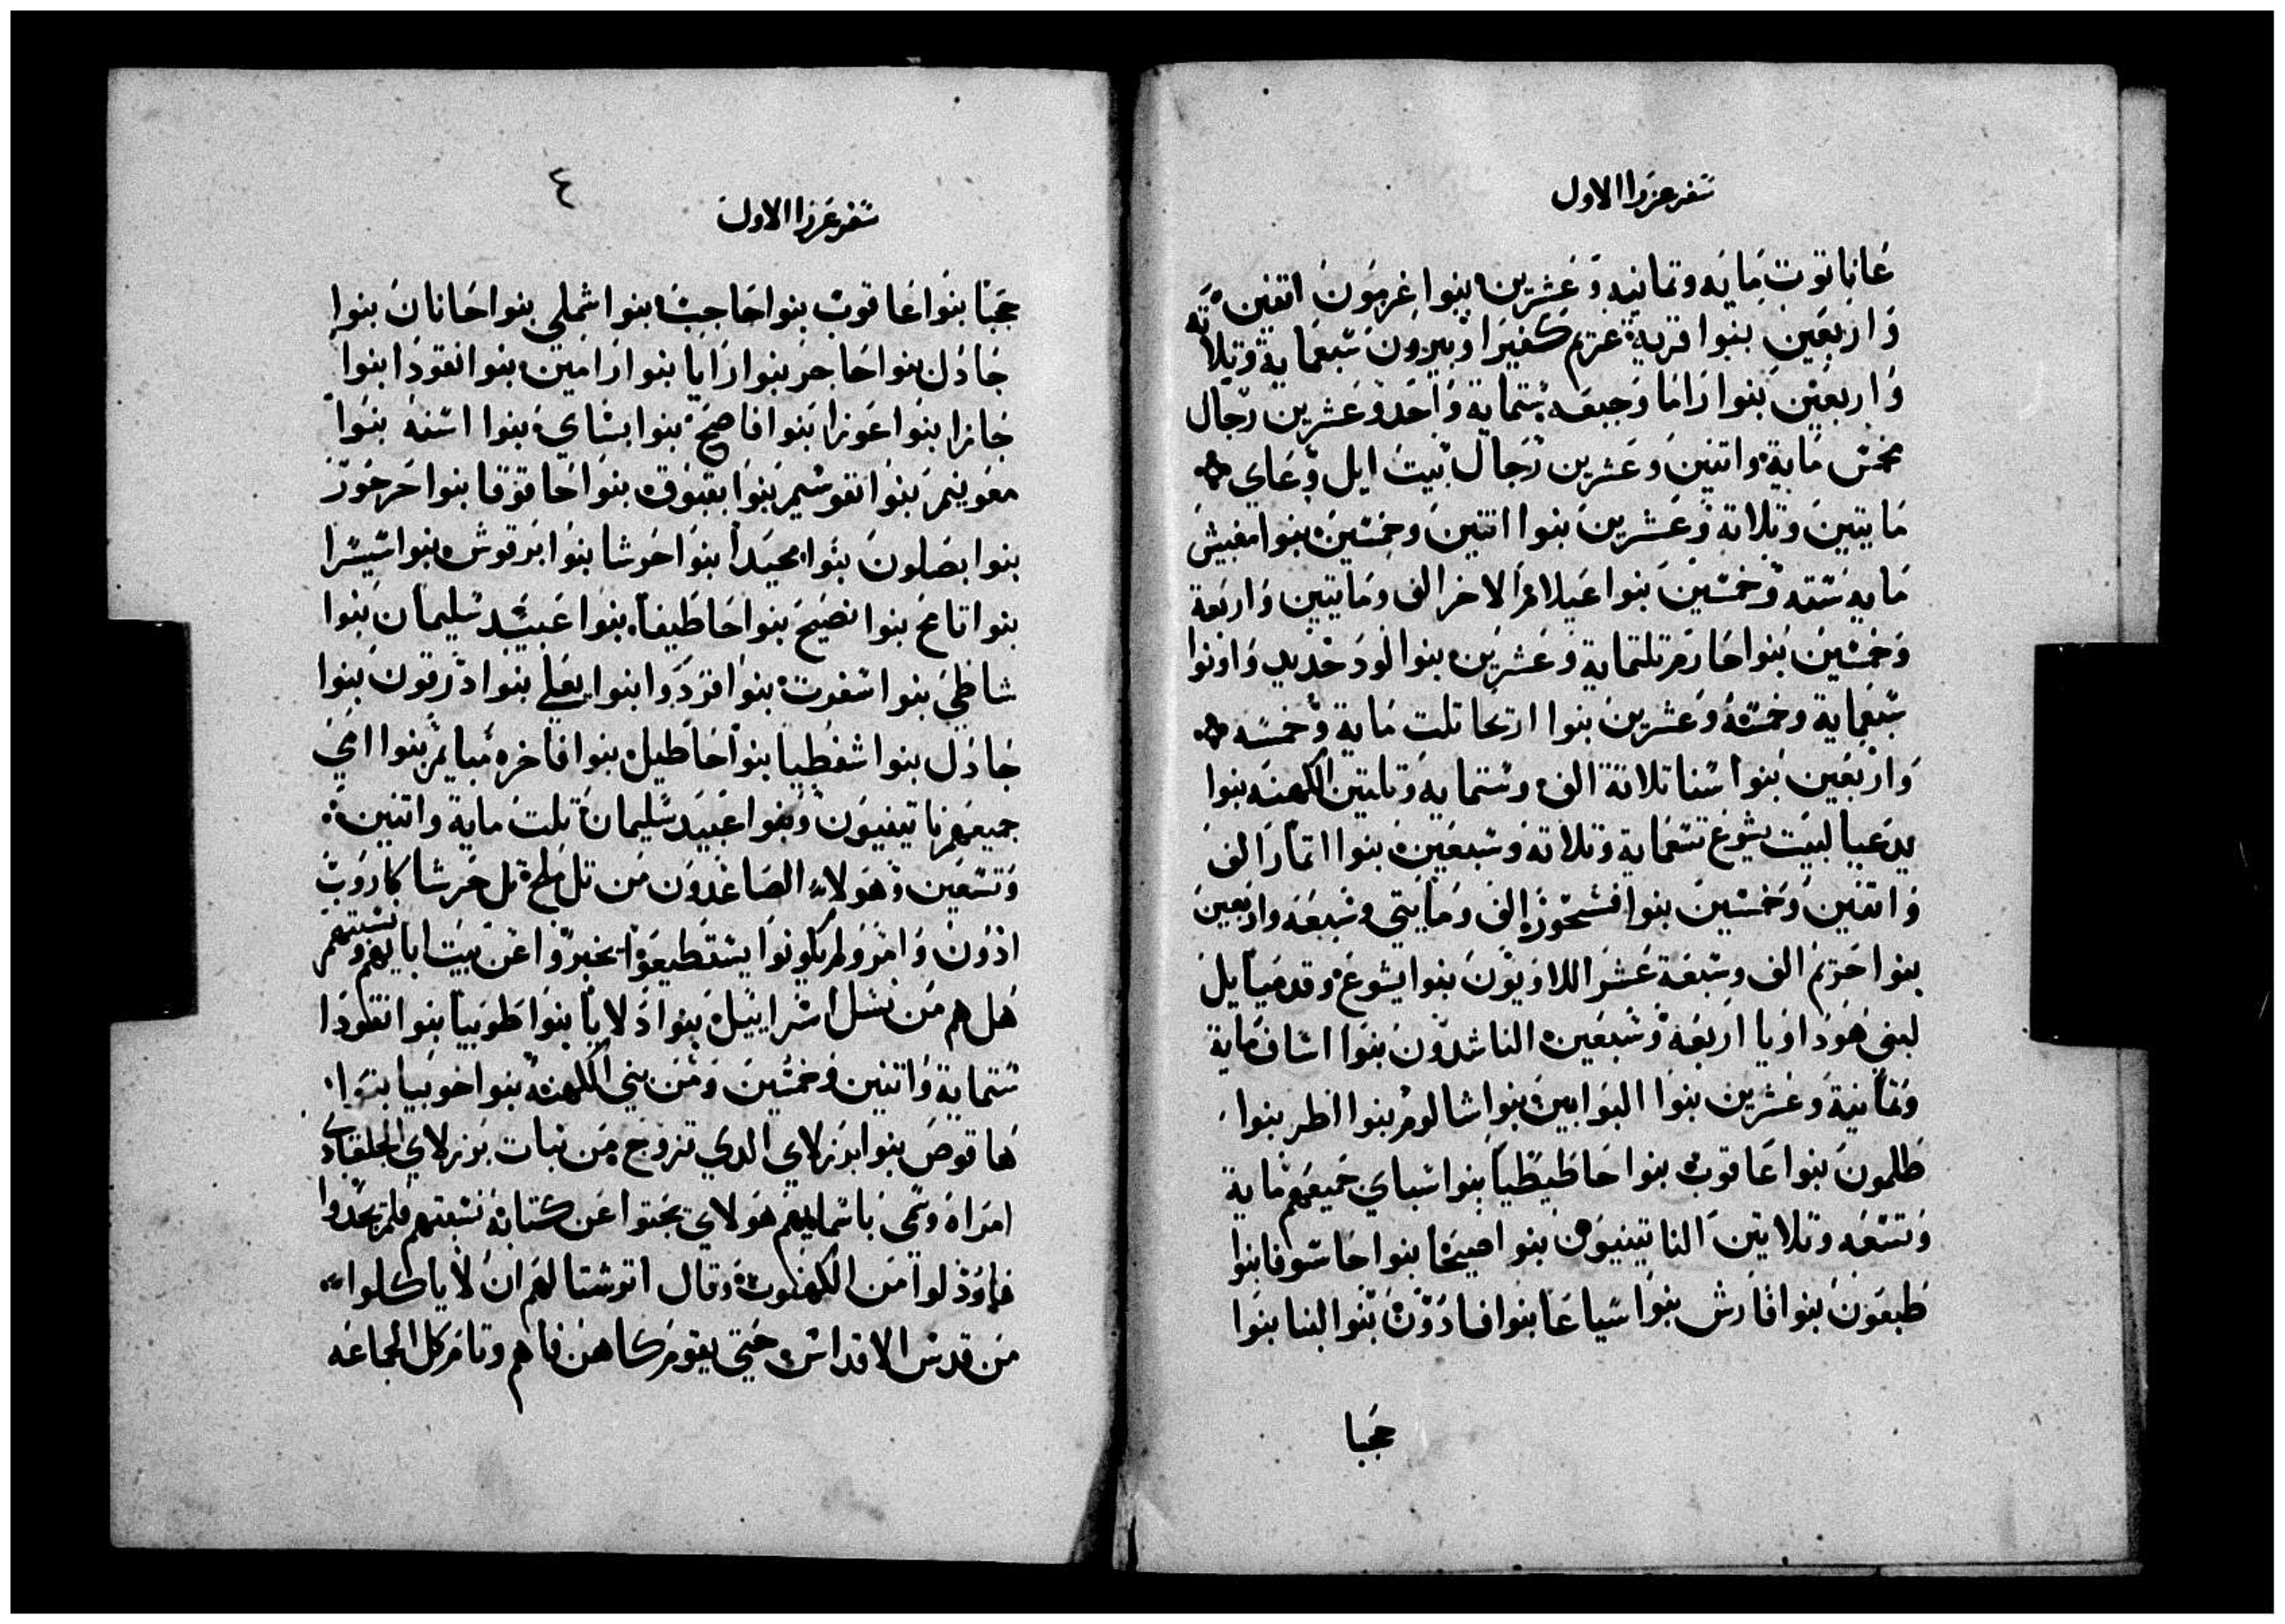 سفر عزرا الاول
عاناتوت مايه وتمانيه وعشرين بنوا غرموت اتنين
واربعين بنوا قرية عزيم كفيرا وبيروت سبعماية وتلاته
واربعين بنوا راما وجبعه ستماية واحد وعشرين رجال
مخمس ماية واتنين وعشرين رجال بيت ايل وعاي
مايتين وتلاتة وعشرين بنوا اتنين وخمسين بنوا مغبيش
مايه سته وخمسين بنوا عيلام الاخر الف ومايتين واربعة
وخمسين بنوا حارم تلتماية وعشرين بنوا لود حديد واونوا
سبعماية وخمسة وعشرين بنوا اريحا تلت ماية وخمسه
واربعين بنوا سنا تلاتة الف وستمايه وتلتين الكهنه بنوا
يدعيا لبيت يشوع تسعماية وتلاته وسبعين بنوا اتمار الف
واتنين وخمسين بنوا فشحور الف ومايتي وسبعه واربعين
بنوا حريم الف وسبعة عشر اللاويون بنوا يشوع وقدميايل
لبني هودوايا اربعه وسبعين الناشدون بنوا اساف ماية
وتمانية وعشرين بنوا البوابين بنوا شالوم بنوا اطر بنوا
طلمون بنوا عاقوب بنوا حاطيطيا بنوا سباي جميعهم ماية
وتسعه وتلاتين الناتينيون بنوا صيحا بنوا حاسوفا بنوا
طبعون بنوا قارش بنوا سياعا بنوا فادون بنوا لبنا بنوا
حجبا
٤
سفر عزرا الاول
حجبا بنوا عاقوب بنوا حاجب بنوا شملي بنوا حانان بنوا
جادل بنوا حاجر بنوا رايا بنوا رامين بنوا نقودا بنوا
جازا بنوا عوزا بنوا فاصح بنوا بساي بنوا اسنه بنوا
معونيم بنوا نفوسيم بنوا بقبوق بنوا حاقوقا بنوا حرحور
بنوا بصلوت بنوا محيدا بنوا حرشا بنوا برقوش بنوا سيسرا
بنوا تامح بنوا نصيح بنوا حاطيفا بنوا عبيد سليمان بنوا
شاطي بنوا سفرت بنوا فردوا بنوا يعلي بنوا درقون بنوا
جادل بنوا شفطيا بنوا حاطيل بنوا فاخره صبايم بنوا امي
جميعهم ناتينيون وبنوا عبيد سليمان تلت ماية واتنين
وتسعين وهولاء الصاعدون من تل ملح تل حرشا كاروب
ادون وامر ولم يكونوا يستطيعوا يخبروا عن بيت ابايهم ونسبتهم
هل هم من نسل اسراييل بنوا دلايا بنوا طوبيا بنوا نقودا
ستماية واتنين وخمسين ومن بني الكهنه بنوا حوبيا بنوا
هاقوص بنوا برزلاي الدي تزوج من بنات برزلاي الجلعادي
امراه وسمي باسمايهم هولاي بحتوا عن كتابة نسبتهم فلم يجدوا
فاوذلوا من الكهنوت وقال اترشتا لهم ان لا ياكلوا
من قدس الاقداس حتي يقوم كاهن فاهم وتام كل الجماعه